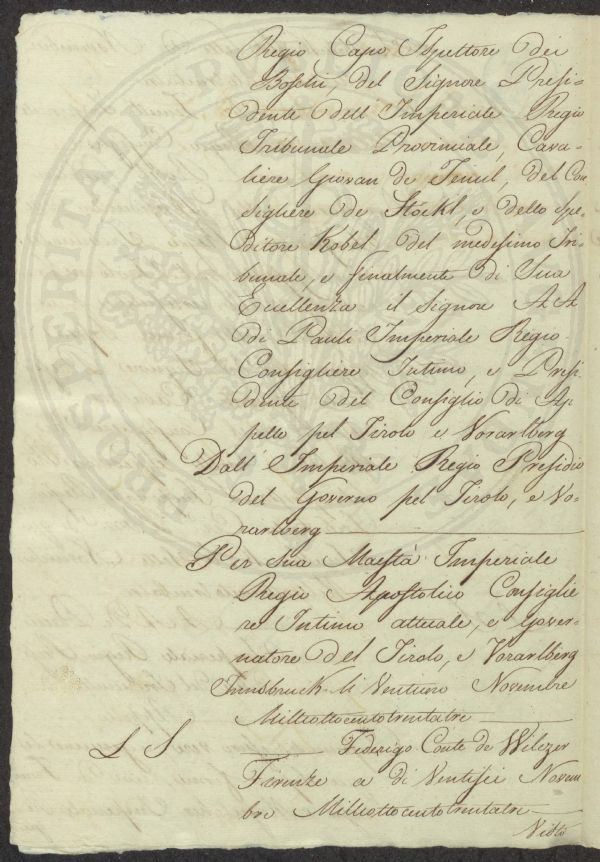 Regio Capo Ispettore dei
Boschi, del Signore Presi-
dente dell'Imperiale Regio
Tribunale Provinciale, Cava-
liere Giovan de
del Con
sigliere de Stöckl, e dello Spe-
ditore Kobel del medesimo Tri-
bunale, e finalmente di Sua
Eccellenza il Signore A A
di Pauli Imperiale Regio
Consigliere Intimo, e Presi-
dente del Consiglio di Ap-
pello pel Tirolo e Vorarlberg
Dall'Imperiale Regio Presidio
del Governo pel Tirolo, e Vo-
rarlberg
Per Sua Maestà Imperiale
Regio Apostolico Consiglie
re Intimo attuale, e Gover-
natore del Tirolo, e Vorarlberg
Innsbruck li Ventuno Novembre
Milleottocentotrentatre
L S Federigo Conte de Wilczer
Firenze a di Ventisei Novem
bre Milleottocentotrentatre
Visto
PROSPERITA